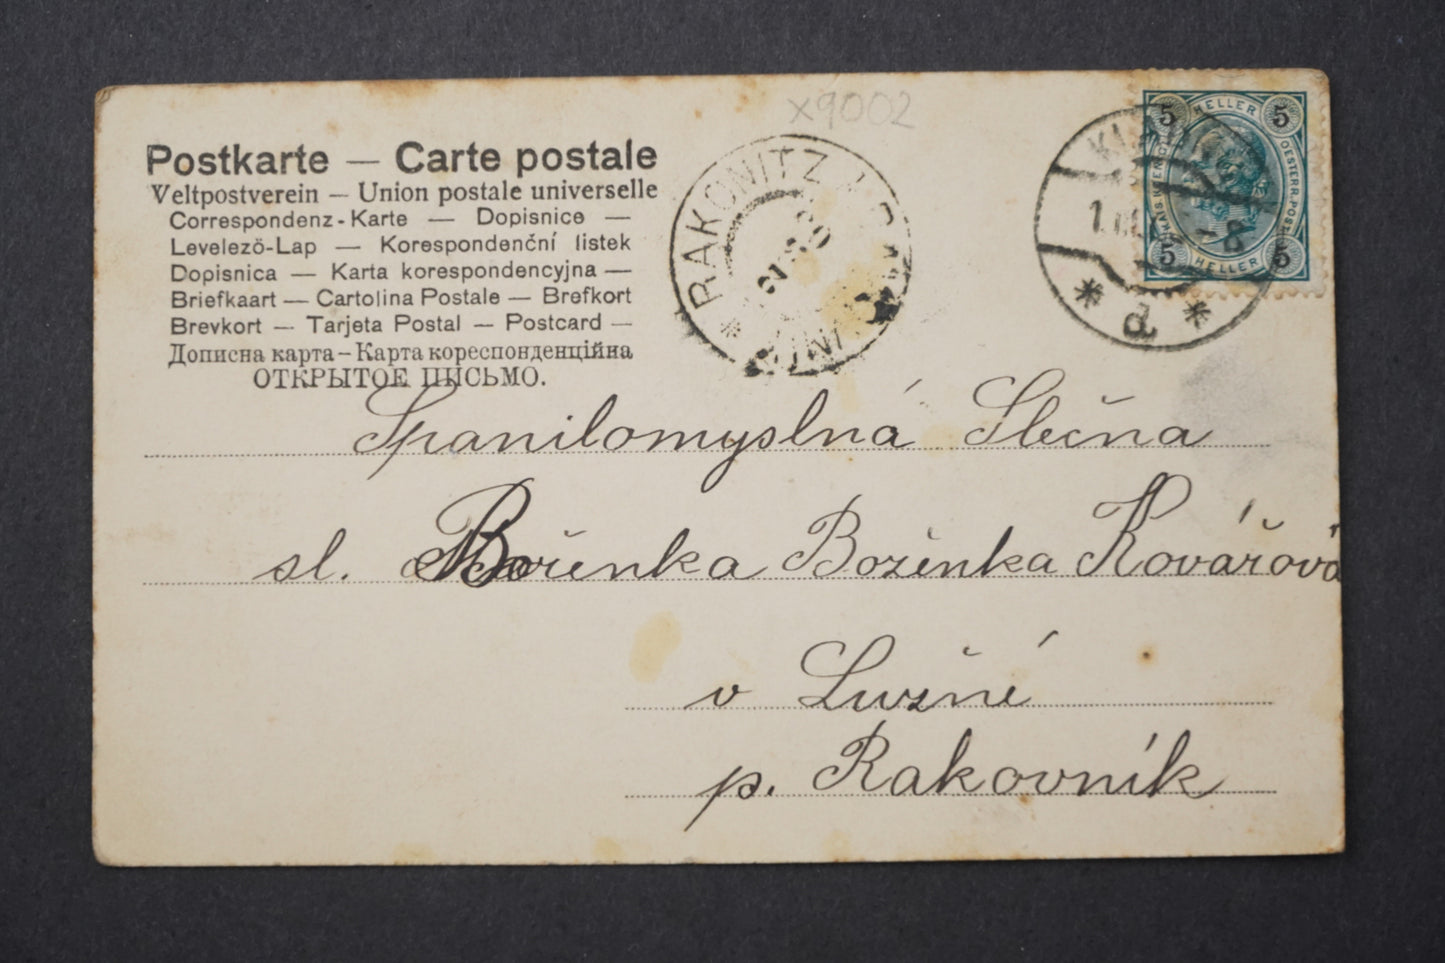 x9002
Postkarte — Carte postale
Weltpostverein — Union postale universelle
Correspondenz-Karte — Dopisnice —
Levelezö-Lap — Korespondenční listek
Dopisnica — Karta korespondencyjna —
Briefkaart — Cartolina Postale — Brefkort
Brevkort — Tarjeta Postal — Postcard —
Дописна карта – Карта кореспонденційна
ОТКРЫТОЕ ПИСЬМО.
RAKONITZ
5 HELLER 5
KAIS. KÖENIGL. OESTERR. POST.
5 HELLER 5
d
Spanilomyslná Slečna
sl. Boženka Boženka Kovářová
v Lužné
p. Rakovník